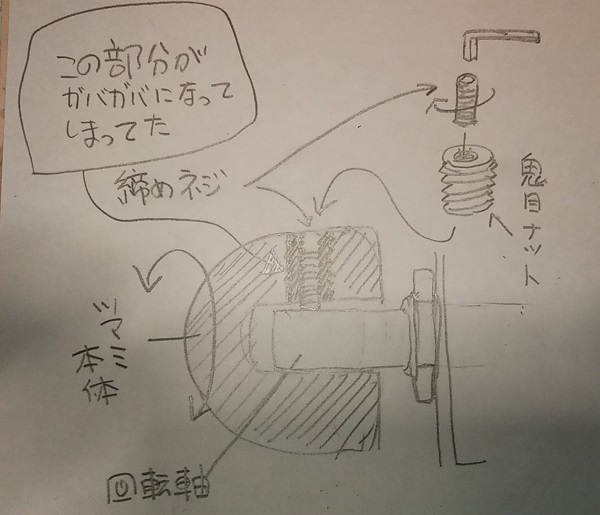 この部分が
ガバガバになって
しまってた
締めネジ
鬼目ナット
ツマミ
本体
回転軸